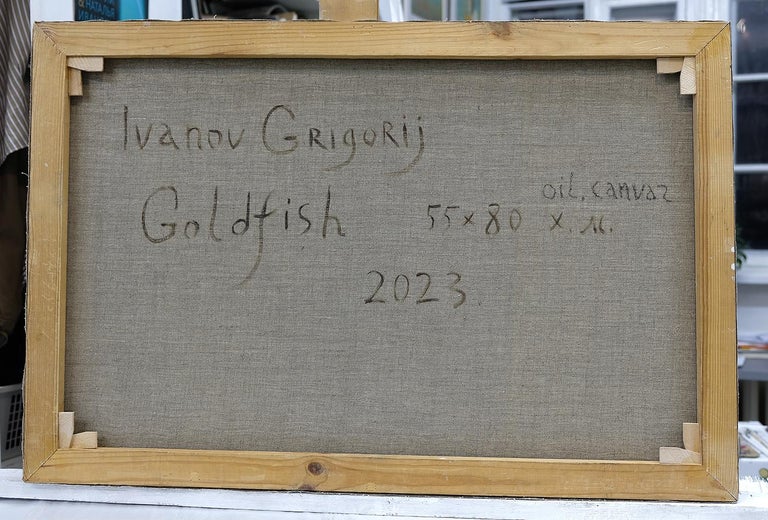 & НАТАЛЬЯ
Ivanov Grigorij
oil, canvas
Goldfish 55×80 х.м.
2023.